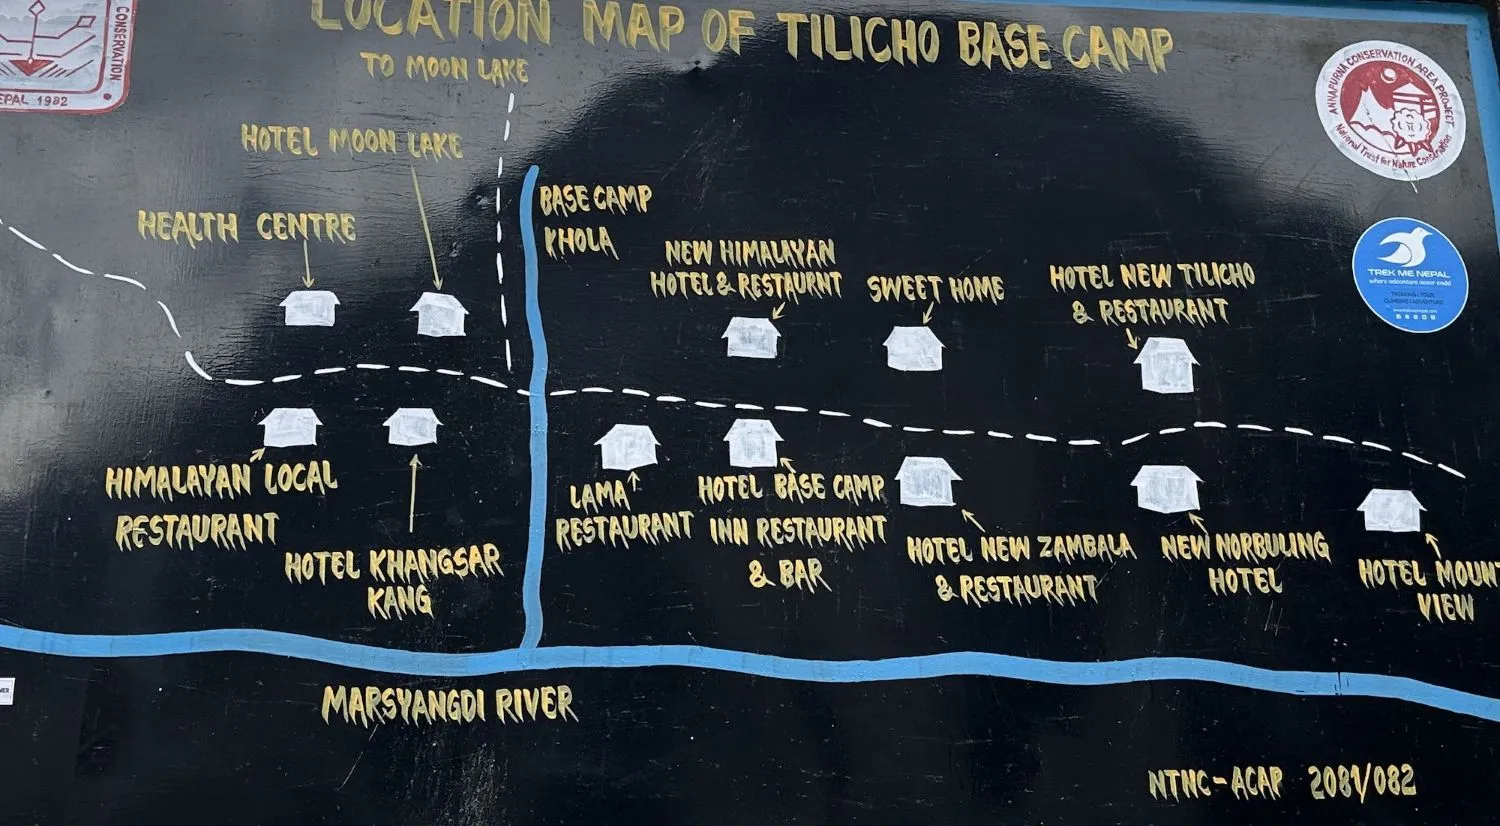 LOCATION MAP OF TILICHO BASE CAMP
CONSERVATION
EPAL 1982
TO MOON LAKE
ANNAPURNA CONSERVATION AREA PROJECT
National Trust for Nature Conservation
HOTEL MOON LAKE
HEALTH CENTRE
BASE CAMP
KHOLA
NEW HIMALAYAN
HOTEL & RESTAURNT
SWEET HOME
HOTEL NEW TILICHO
& RESTAURANT
TREK ME NEPAL
where adventure never ends!
HIMALAYAN LOCAL
RESTAURANT
HOTEL KHANGSAR
KANG
LAMA
RESTAURANT
HOTEL BASE CAMP
INN RESTAURANT
& BAR
HOTEL NEW ZAMBALA
& RESTAURANT
NEW NORBULING
HOTEL
HOTEL MOUNT
VIEW
MARSYANGDI RIVER
NTNC-ACAP 2081/082